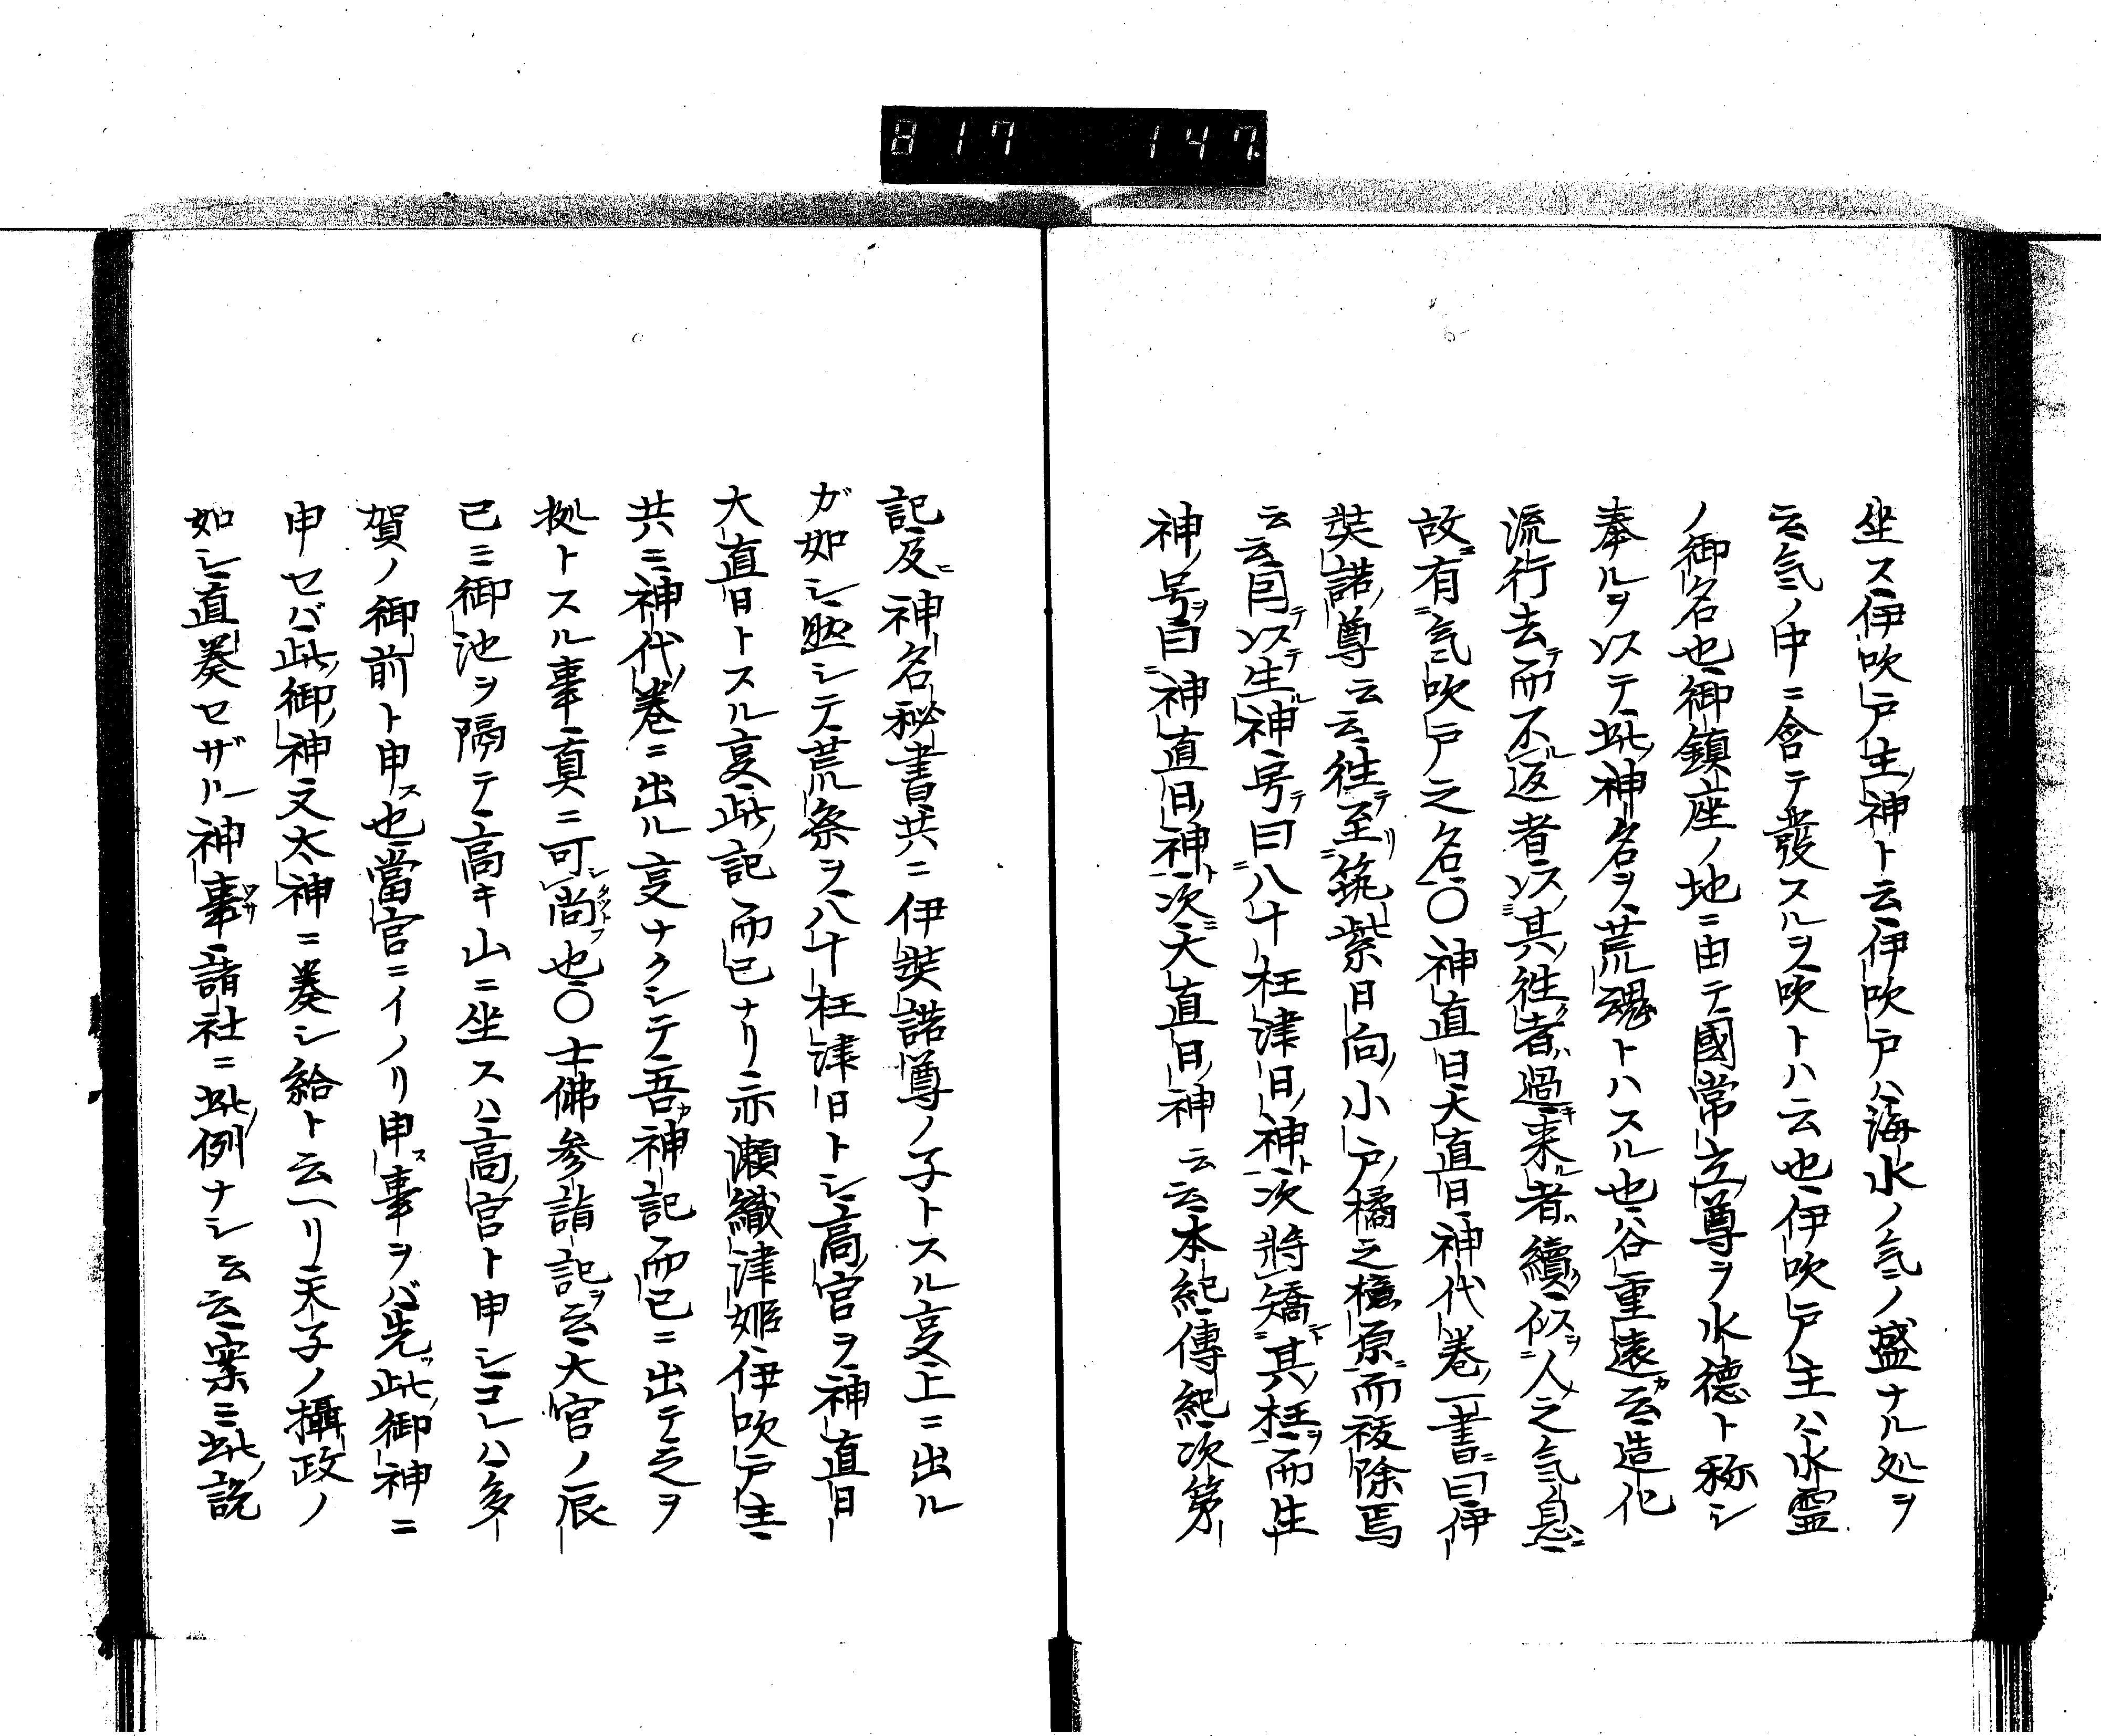 817 147
坐ス伊吹戸主神ト云伊吹戸ハ海水ノ気ノ盛ナル処ヲ
云気ノ中ニ含テ發スルヲ吹トハ云也伊吹戸主ハ水霊
ノ御名也御鎮座ノ地ニ由テ國常立尊ヲ水徳ト称シ
奉ルヲ以テ此神名ヲ荒魂トハスル也谷重遠云造化
流行去而不返者以其往者過来者續似人之気息
故有気吹戸之名〇神直日大直日神代巻一書曰伊
奘諾尊云云往至筑紫日向小戸橘之檍原而祓除焉
云云因以生神号曰八十枉津日神次将矯其枉而生
神号曰神直日神次大直日神云云本紀傳紀次第
記及神名秘書共ニ伊奘諾尊ノ子トスル㕝上ニ出ル
ガ如シ然シテ荒祭ヲ八十枉津日トシ高宮ヲ神直日
大直日トスル㕝此記而已ナリ亦瀬織津姫伊吹戸主
共ニ神代巻ニ出ル㕝ナクシテ吾神記而已ニ出テ之ヲ
拠トスル事真ニ可尚也〇士佛参詣記云大宮ノ辰
巳ニ御池ヲ隔テ高キ山ニ坐スハ高宮ト申シコレハ多
賀ノ御前ト申也當宮ニイノリ申事ヲバ先此御神ニ
申セバ此御神又太神ニ奏シ給ト云ヘリ天子ノ攝政ノ
如シ直奏セザル神事諸社ニ此例ナシ云云案ニ此説